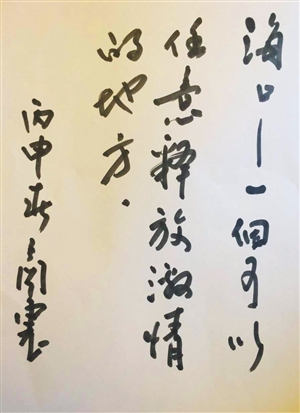 海口—一個可以
任意释放激情
的地方.
丙申春